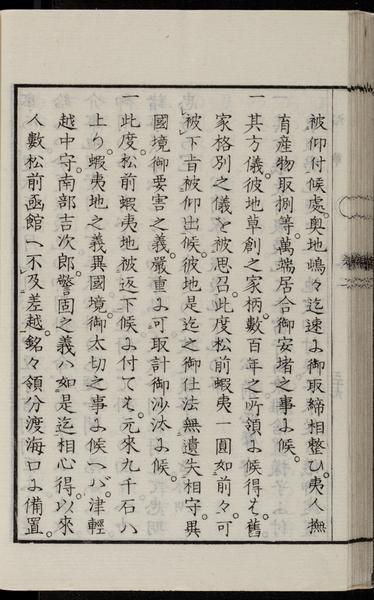 被仰付候處。奥地嶋々迄速ニ御取締相整ひ。夷人撫
育産物取捌等。萬端居合御安堵之事ニ候。
一其方儀。彼地草創之家柄。數百年之所領ニ候得ハ。舊
家格別之儀と被思召。此度松前蝦夷一圓如前々可
被下旨被仰出候。彼地是迄之御仕法無遺失相守。異
國境御要害之義。嚴重ニ可取計御沙汰ニ候。
一此度。松前蝦夷地被返下候ニ付てハ。元來九千石ハ
上り。蝦夷地之義異國境。御太切之事ニ候ヘバ。津輕
越中守。南部吉次郎。警固之義ハ如是迄相心得。以來
人數松前函館ヘ不及差越。銘々領分渡海口ニ備置。